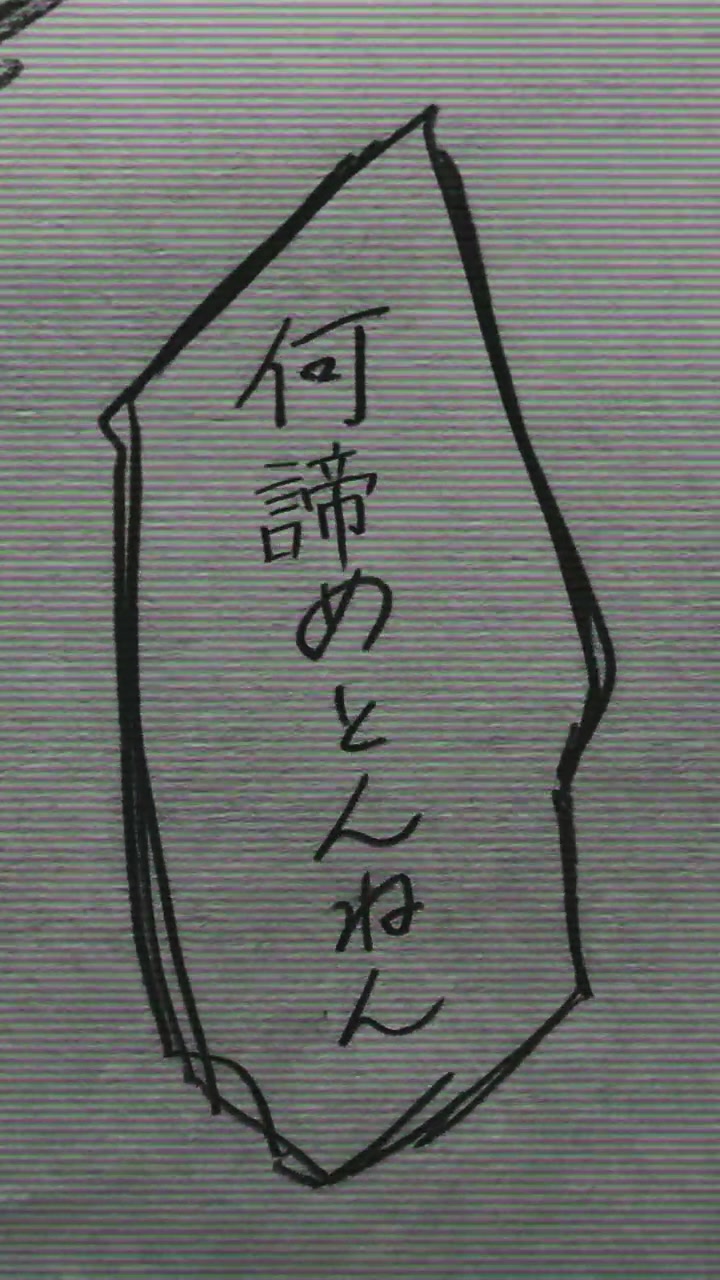 何諦めとんねん